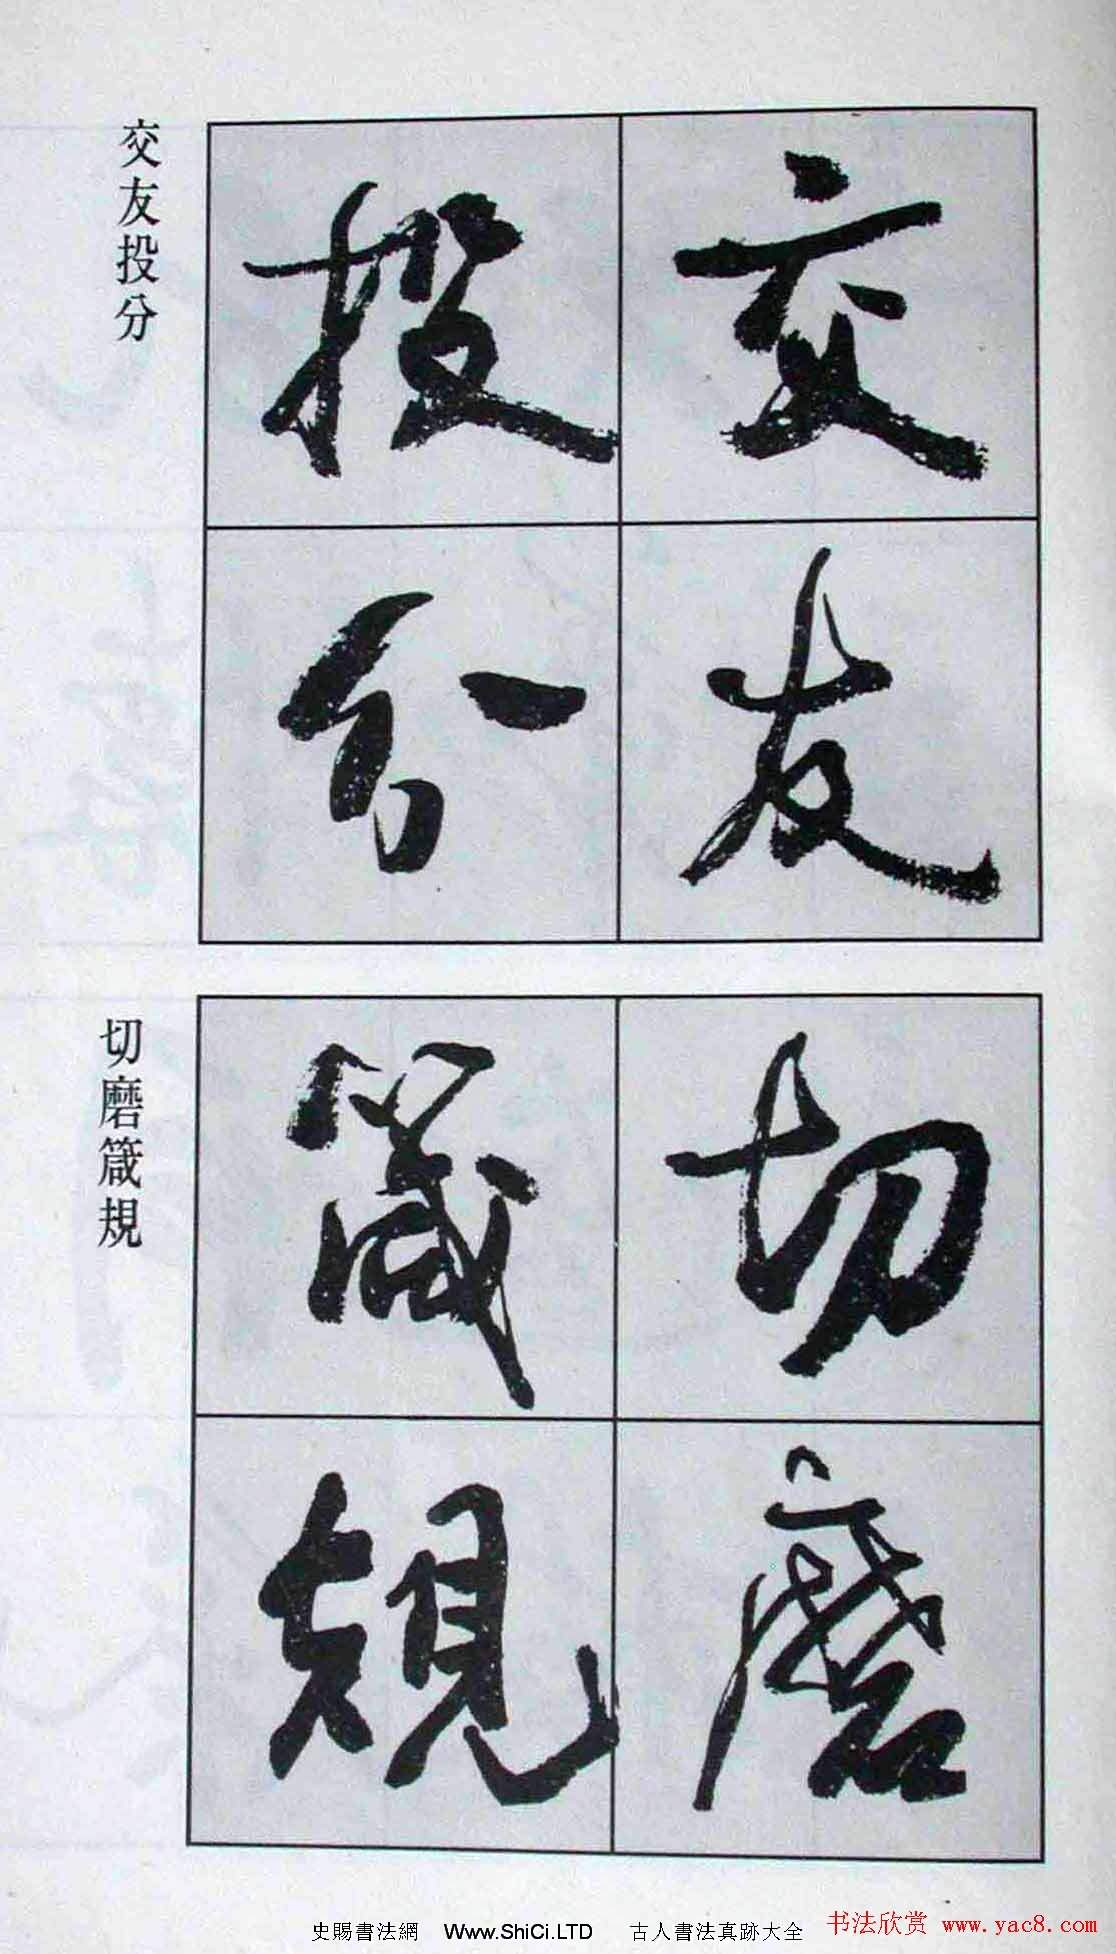 交友
投分
交友投分
切磨
箴規
切磨箴規
史賜書法網 Www.ShiCi.LTD 古人書法真跡大全
书法欣赏 www.yac8.com